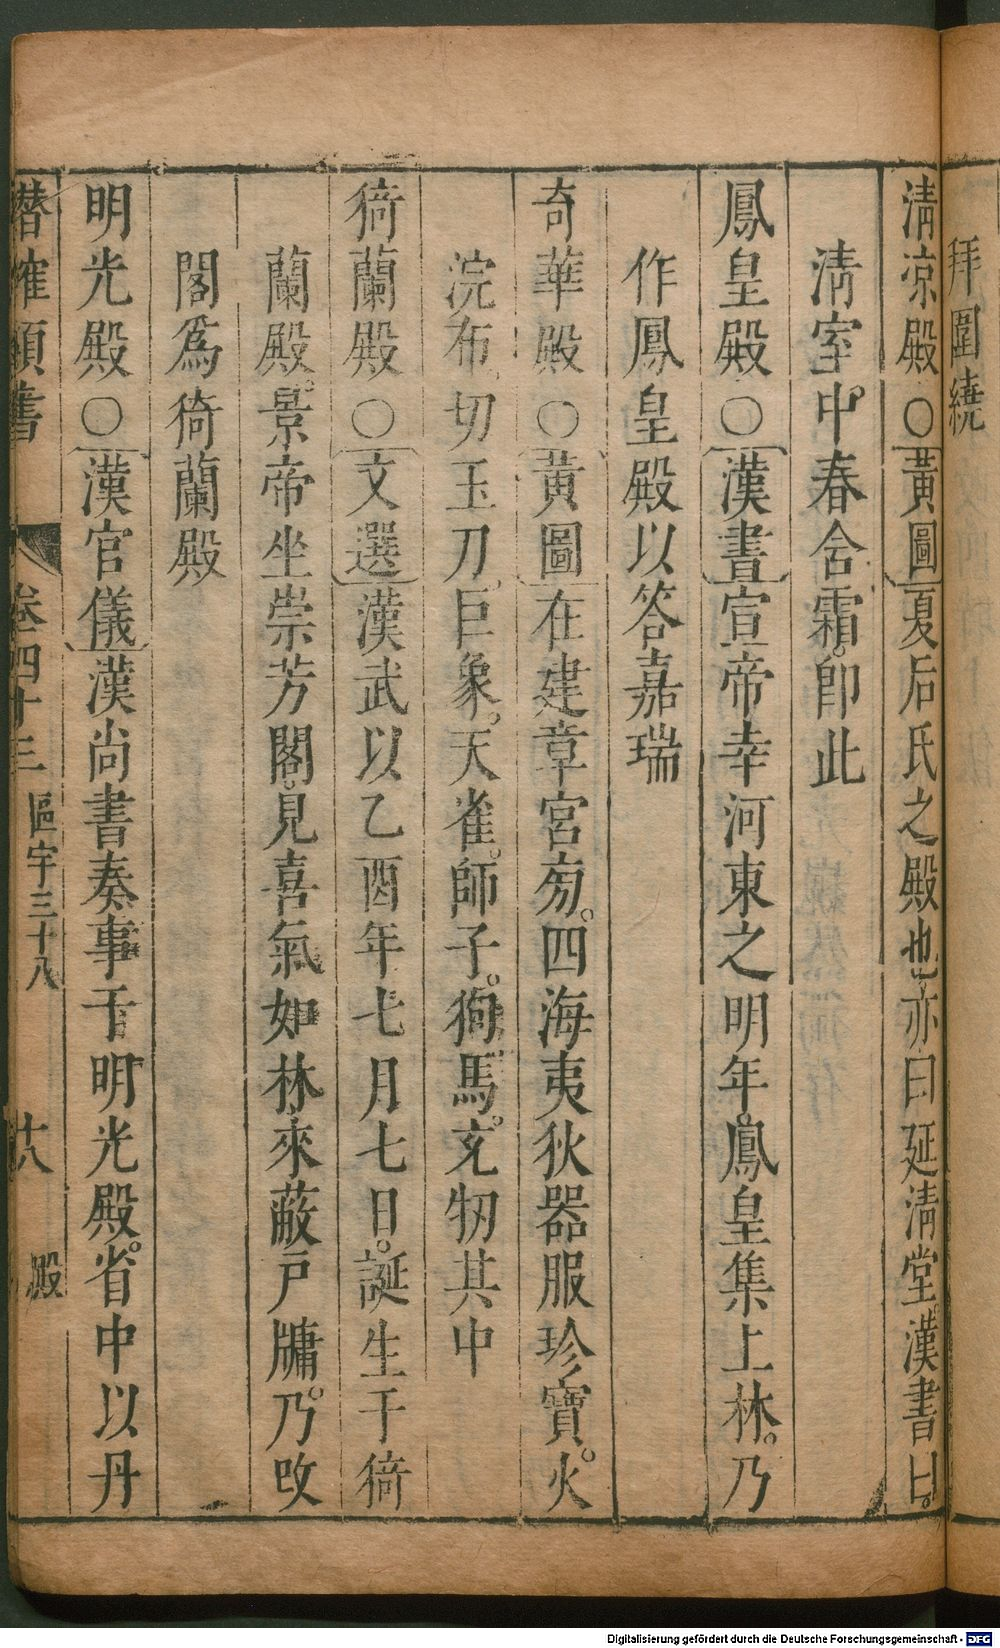 拜圍繞
清凉殿○黃圖夏后氏之殿也亦曰延清堂漢書曰
清室中春含霜卽此
鳳皇殿○漢書宣帝幸河東之明年鳳皇集上林乃
作鳳皇殿以答嘉瑞
奇華殿○黃圖在建章宮旁四海夷狄器服珍寶火
浣布切玉刀巨象天雀師子狗馬充牣其中
猗蘭殿○文選漢武以乙酉年七月七日誕生于猗
蘭殿景帝坐崇芳閣見喜氣如林來蔽戸牖乃改
閣爲猗蘭殿
明光殿○漢官儀漢尚書奏事于明光殿省中以丹
潛確類書 卷四十三 區宇三十八 十八 殿
Digitalisierung gefördert durch die Deutsche Forschungsgemeinschaft - DFG